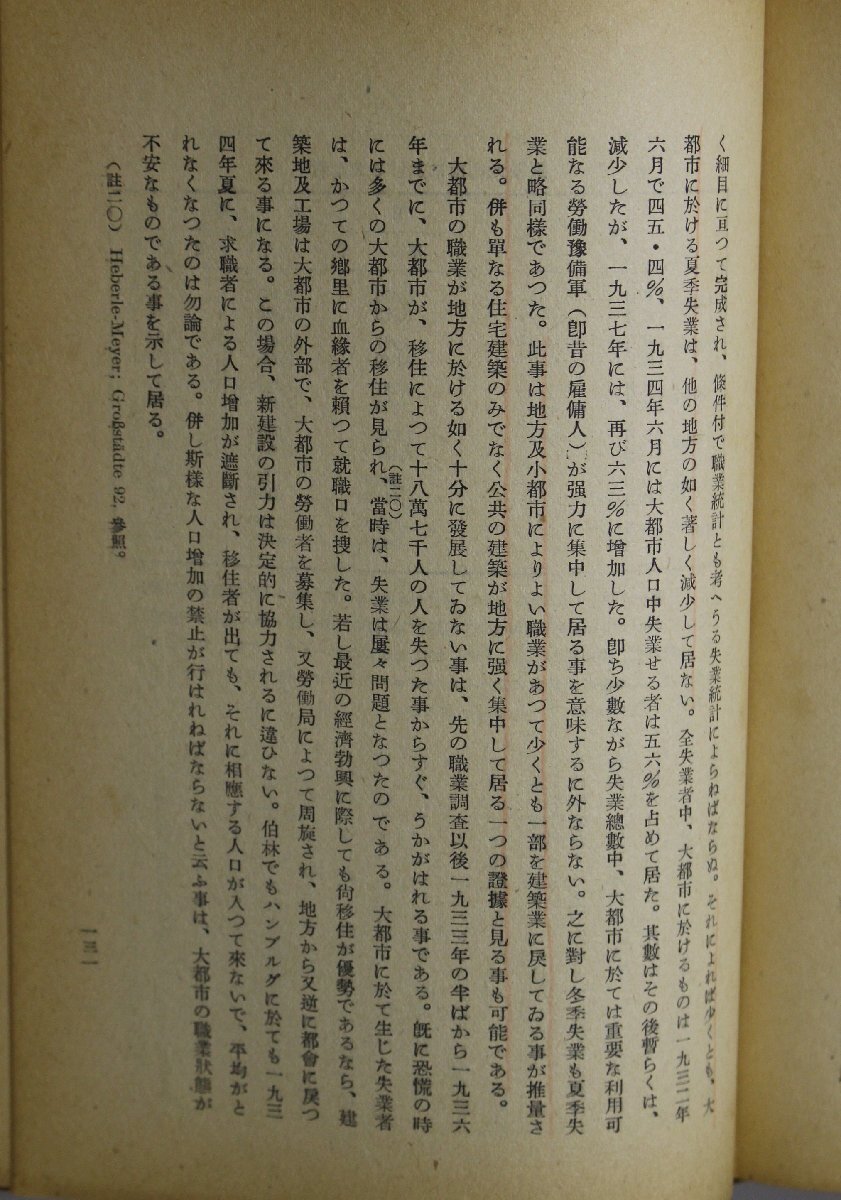 く細目に亘つて完成され、條件付で職業統計とも考へうる失業統計によらねばならぬ。それによれば少くとも、大
都市に於ける夏季失業は、他の地方の如く著しく減少して居ない。全失業者中、大都市に於けるものは一九三二年
六月で四五・四%、一九三四年六月には大都市人口中失業せる者は五六%を占めて居た。其數はその後暫らくは、
減少したが、一九三七年には、再び六三%に増加した。卽ち少數ながら失業總數中、大都市に於ては重要な利用可
能なる勞働豫備軍（卽昔の雇傭人）が强力に集中して居る事を意味するに外ならない。之に對し冬季失業も夏季失
業と略同樣であつた。此事は地方及小都市によりよい職業があつて少くとも一部を建築業に戾してゐる事が推量さ
れる。併も單なる住宅建築のみでなく公共の建築が地方に强く集中して居る一つの證據と見る事も可能である。
大都市の職業が地方に於ける如く十分に發展してゐない事は、先の職業調査以後一九三三年の半ばから一九三六
年までに、大都市が、移住によつて十八萬七千人の人を失つた事からすぐ、うかがはれる事である。旣に恐慌の時
（註二〇）
には多くの大都市からの移住が見られ、當時は、失業は屢々問題となつたのである。大都市に於て生じた失業者
は、かつての鄕里に血緣者を賴つて就職口を搜した。若し最近の經濟勃興に際しても尙移住が優勢であるなら、建
築地及工場は大都市の外部で、大都市の勞働者を募集し、又勞働局によつて周旋され、地方から又逆に都會に戾つ
て來る事になる。この場合、新建設の引力は決定的に協力されるに違ひない。伯林でもハンブルグに於ても一九三
四年夏に、求職者による人口增加が遮斷され、移住者が出ても、それに相應する人口が入つて來ないで、平均がと
れなくなつたのは勿論である。併し斯樣な人口增加の禁止が行はれねばならないと云ふ事は、大都市の職業狀態が
不安なものである事を示して居る。
（註二〇） Heberle-Meyer; Großstädte 92, 參照。
一三一